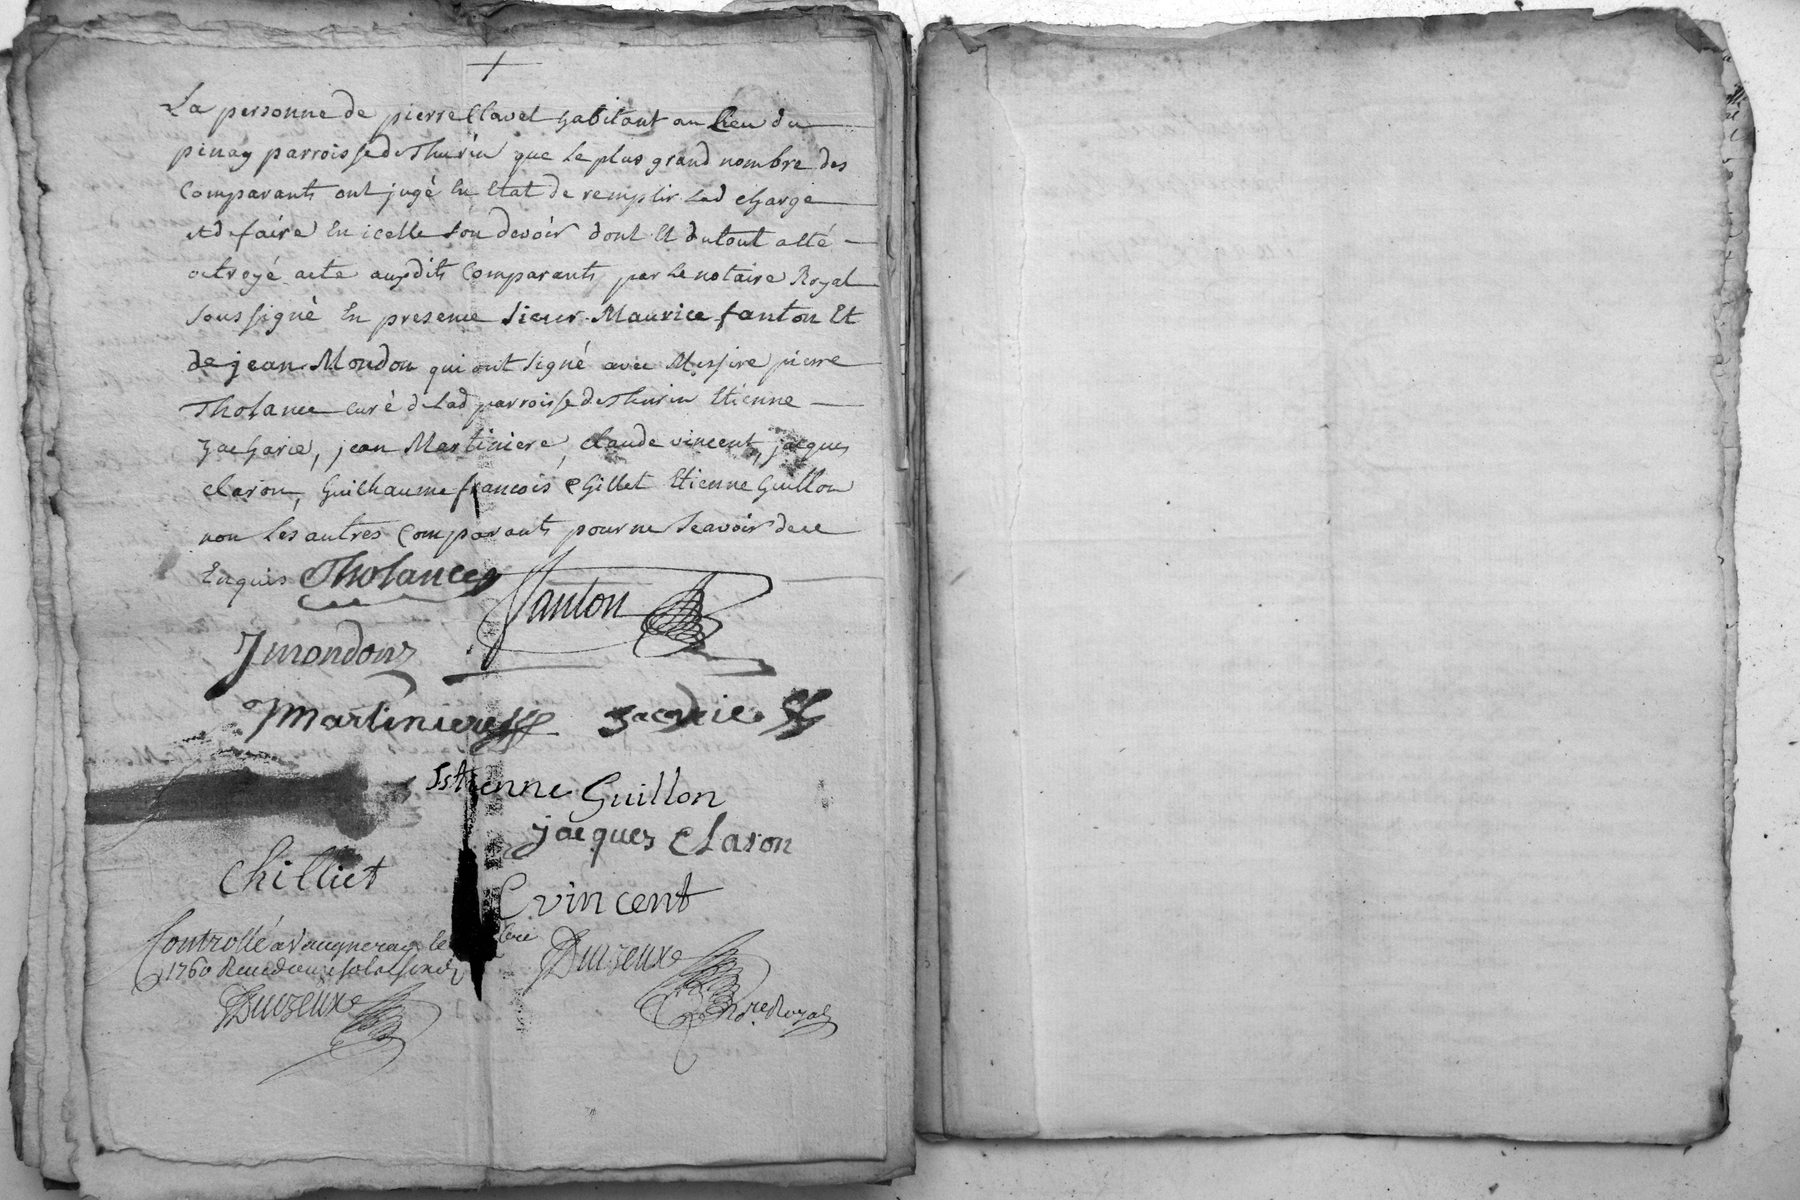 La personne de pierre Clavel habitant au lieu du
pinay parroisse de Thurin que le plus grand nombre des
Comparants ont jugé En Etat de remplir lad charge
et de faire En icelle son devoir dont Et du tout a été
octroyé acte auxdits Comparants par le notaire Royal
soussigné En presence sieur Maurice fanton Et
de jean Mondon qui ont signé avec Messire pierre
Tholance curé de lad parroisse de Thurin Etienne
Zacharie, jean Martiniere, claude vincent, jacques
claron, Guilhaume françois Chillet Etienne Guillon
non les autres Comparants pour ne sçavoir de ce
Enquis Tholance
fanton
J mondon
J martiniere Zacarie
Estienne Guillon
jacques Claron
Chilliet
C vincent
Controllé a Vaugneray le bre
1760 Reçu douze sols
Duvzeux
No.re Royal